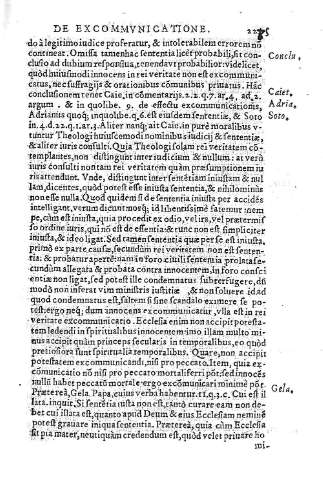 DE EXCOMMVNICATIONE.
do à legitimo iudice proferatur, & intolerabilem errorem nõ
contineat. Omissa tamen hac sententia licet probabili, sit conclu
sio ad dubium responsiua, tenenda vt probabilior: videlicet,
quòd huiusmodi innocens in rei veritate non est excommuni
catus, nec suffragijs & orationibus cõmunibus priuatur. Hãc
conclusionem tenet Caie. in cõmentarijs. 2.2. q.7. ar.4. ad.2.
argum. & in quolibe. 9. de effectu excommunicationis,
Adrianus in quolibe. q.6. est eiusdem sententiæ, & Soto
in.4. d.22. q.1. ar.3. Aliter nanq; ait Caie. in puré moralibus v-
tuntur Theologi huiuscemodi nominibus iudicij & sententiæ,
& aliter iuris consulti. Quia Theologi solam rei veritatem cõ-
templantes, non distinguunt inter iudicium & nullum: at verò
iuris consulti non tam rei veritatem quàm præsumptionem iu
ris attendunt. Vnde, distinguunt inter sentẽtiam iniustam & nul
lam, dicentes, quòd potest esse iniusta sententia, & nihilominùs
non esse nulla. Quod quidẽ si de sententia iniusta per accidẽs
intelligant, verum dicunt: eoq; id libentissimè fatemur: nem
pe, cùm est iniusta, quia procedit ex odio, vel ira, vel prætermis
so ordine iuris, qui nõ est de essentia: & tunc non est simpliciter
iniusta, & ideo ligat. Sed tamẽ sententia quæ per se est iniusta,
primò ex parte causæ, secundùm rei veritatem non est senten-
tia: & probatur apertè: nam in foro ciuili sententia prolata se-
cundùm allegata & probata contra innocentem, in foro consci
entiæ non ligat, sed potest ille condemnatus subterfugere, dũ
modò non inferat vim ministris iustitiæ, & non soluere id ad
quod condemnatus est, saltem si sine scandalo exímere se po-
test: ergo neq; dum innocens excommunicatur, vlla est in rei
veritate excommunicatio. Ecclesia enim non accipit potesta-
tem lædendi in spiritualibus innocentem: imo illam multo mi-
nus accipit quàm princeps secularis in temporalibus, eo quòd
pretiosiora sunt spiritualia temporalibus. Quare, non accipit
potestatem excommunicandi, nisi pro peccato. Item, quia ex-
cõmunicatio nõ nisi pro peccato mortali ferri põt: sed innocẽs
nullũ habet peccatũ mortale: ergo excõmunicari minimè põt.
Prætereà, Gela. Papa, cuius verba habentur. 11. q.3. c. Cui est il
lata. inquit, Si sentẽtia iusta non est, tantò curare eam non de-
bet cui illata est, quanto apud Deum & eius Ecclesiam neminẽ
potest grauare iniqua sententia. Prætereà, quia cùm Ecclesia
sit pia mater, neutiquàm credendum est, quòd velet priuare ho
mi-
Conclu.
Caiet.
Adria.
Soto.
Gela.